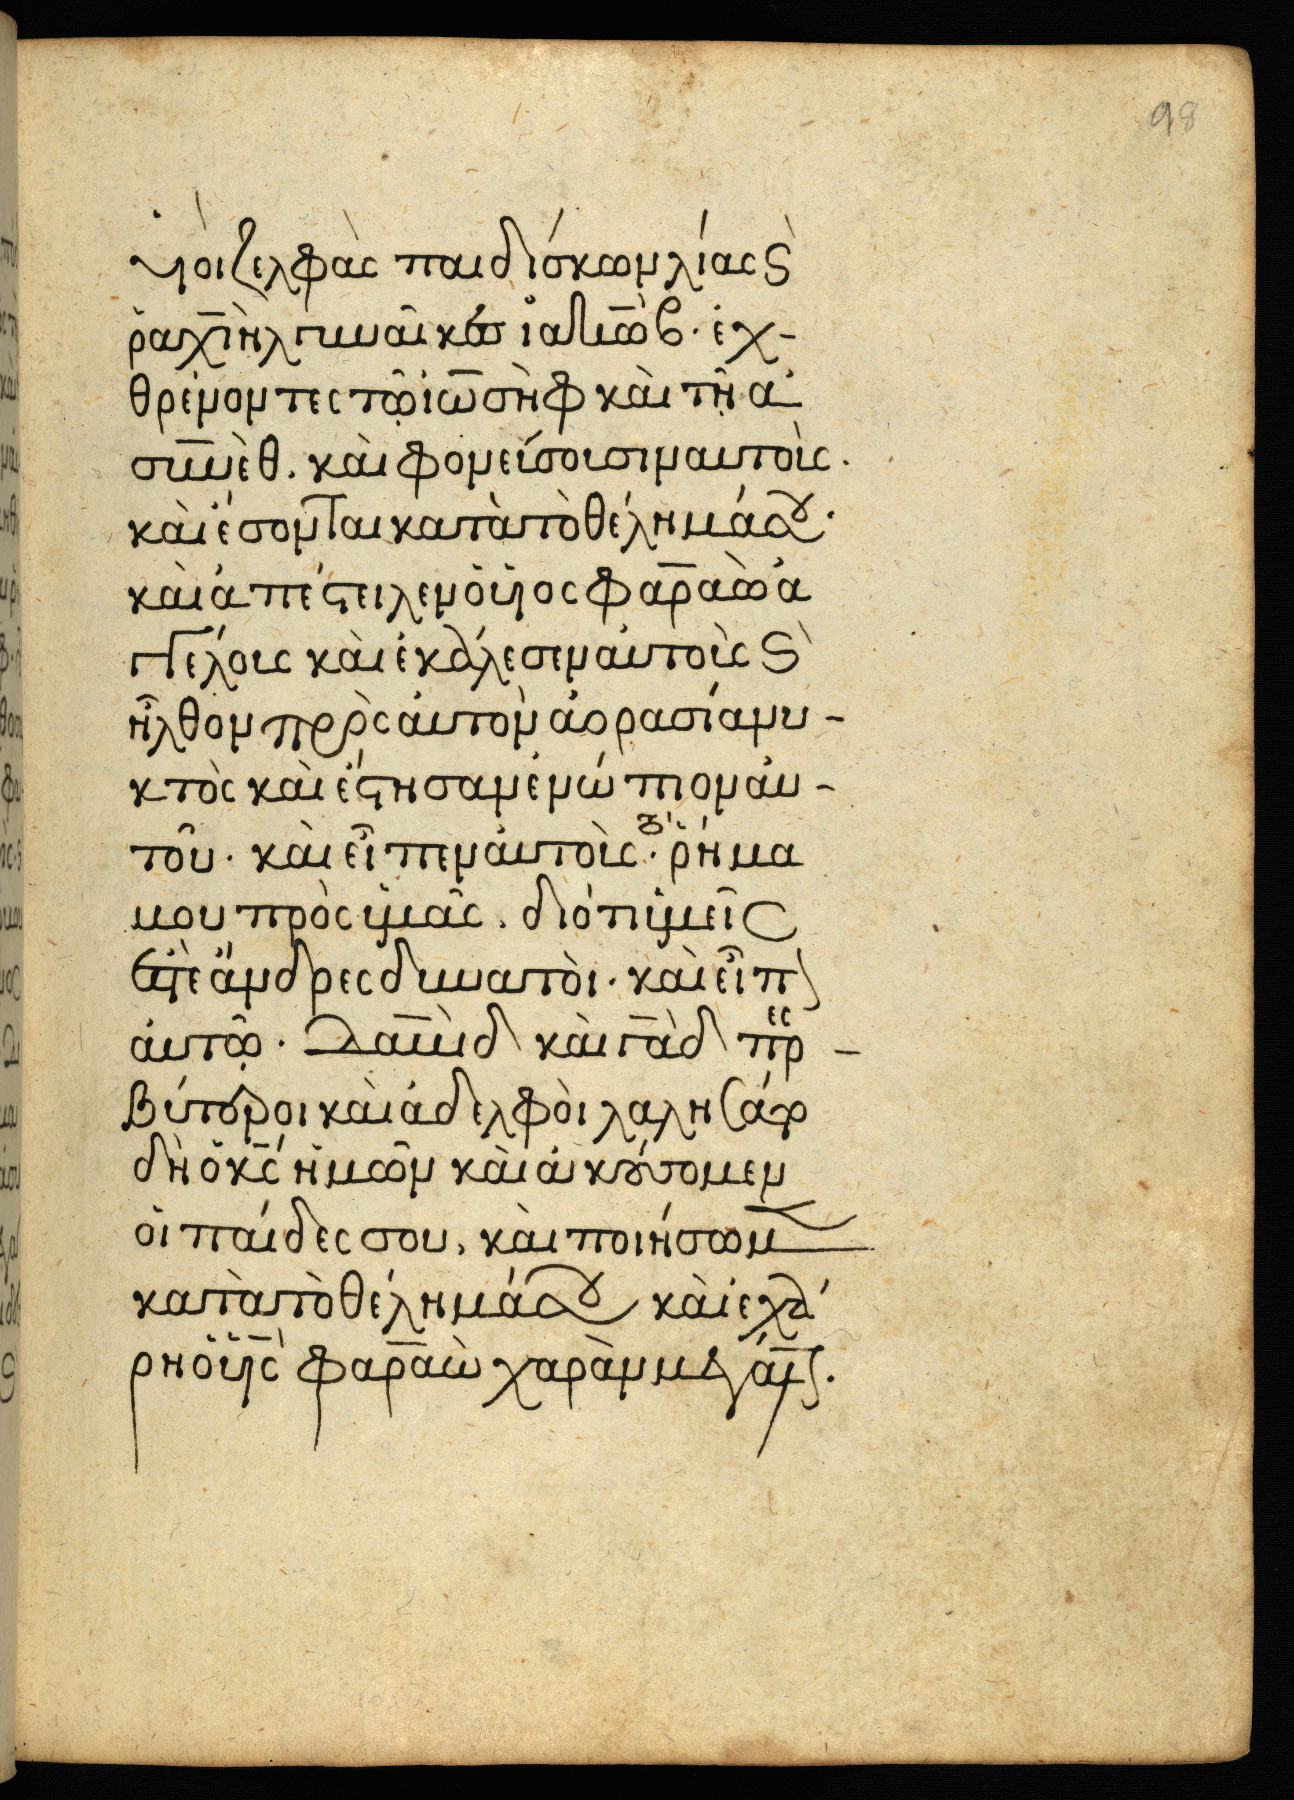 υἱοὶ ζελφὰς παιδίσκων λίας ϛ̀
ῥαχιὴλ γυναικῶν ἰακὼβ· ἐχ-
θρένοντες τῷ ἰωσὴφ καὶ τῇ ἀ
συνὲθ. καὶ φονεύσουσιν αυτοὺς.
καὶ ἔσονται κατὰ τὸ θέλημά σου·
καὶ ἀπέστειλεν ὁ υἱος φαραὼ ἀ
γγέλους καὶ ἐκάλεσεν αὐτοὺς ϛ̀
ἦλθον πρὸς αὐτὸν ἀορασία νυ-
κτὸς καὶ ἔστησαν ἐνώπιον αὐ-
τοῦ· καὶ εἶπεν αὐτοὺς· ῥήμα
μου πρὸς ὑμᾶς. διότι ὑμεῖς
ἐστὲ ἄνδρες δυνατοὶ· καὶ εἶπ
αὐτῷ· Δαυὶδ καὶ γὰδ πρες-
βύτεροι καὶ ἀδελφοὶ λαλησάτω
δὴ ὁ κς ἡμῶν καὶ ἀκούσομεν
οἱ παίδες σου, καὶ ποιήσωμ
κατὰ τὸ θέλημά σου καὶ ἐχά
ρη ὁ υἱὸς φαραὼ χαρὰν
98